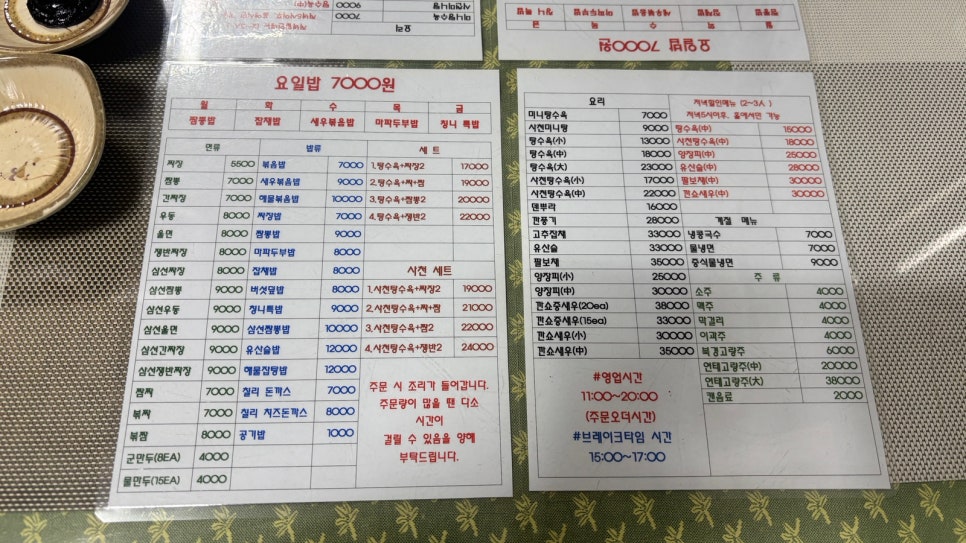 요리
미니탕수육 7000
사천미니탕 9000
요일밥 7000원
월 화 수 목 금
짬뽕밥 잡채밥 세우볶음밥 마파두부밥 칭니 특밥
면류 밥류 세트
짜장 5500 볶음밥 7000 1.탕수육+짜장2 17000
짬뽕 7000 새우볶음밥 9000 2.탕수육+짜+짬 19000
간짜장 7000 해물볶음밥 10000 3.탕수육+짬뽕2 20000
우동 8000 짜장밥 7000 4.탕수육+쟁반2 22000
울면 8000 짬뽕밥 9000
쟁반짜장 8000 마파두부밥 8000
삼선짜장 8000 잡채밥 8000 사천 세트
삼선짬뽕 9000 버섯덮밥 8000 1.사천탕수육+짜장2 19000
삼선우동 9000 칭니특밥 9000 2.사천탕수육+짜+짬 21000
삼선울면 9000 삼선짬뽕밥 10000 3.사천탕수육+짬2 22000
삼선간짜장 9000 유산슬밥 12000 4.사천탕수육+쟁반2 24000
삼선쟁반짜장 9000 해물잡탕밥 12000
짬짜 7000 칠리 돈까스 7000
볶짜 7000 칠리 치즈돈까스 8000
볶짬 8000 공기밥 1000
군만두(8EA) 4000
물만두(15EA) 4000
주문 시 조리가 들어갑니다.
주문량이 많을 땐 다소
시간이
걸릴 수 있음을 양해
부탁드립니다.
요리
미니탕수육 7000
사천미니탕 9000
탕수육(小) 13000
탕수육(中) 18000
탕수육(大) 23000
사천탕수육(小) 17000
사천탕수육(中) 22000
덴뿌라 16000
깐풍기 28000
고추잡채 33000
유산슬 33000
팔보채 35000
양장피(小) 25000
양장피(中) 30000
깐쇼중새우(20ea) 38000
깐쇼중새우(15ea) 33000
깐쇼새우(小) 30000
깐쇼새우(中) 35000
#영업시간
11:00~20:00
(주문오더시간)
#브레이크타임 시간
15:00~17:00
저녁할인메뉴 (2~3人)
저녁5시이후, 홀에서만 가능
탕수육(中) 15000
사천탕수육(中) 18000
양장피(中) 25000
유산슬(中) 28000
팔보채(中) 30000
깐쇼새우(中) 30000
계절 메뉴
냉콩국수 7000
물냉면 7000
중식물냉면 9000
주 류
소주 4000
맥주 4000
막걸리 4000
이과주 4000
북경고량주 6000
연태고량주(中) 20000
연태고량주(大) 38000
캔음료 2000